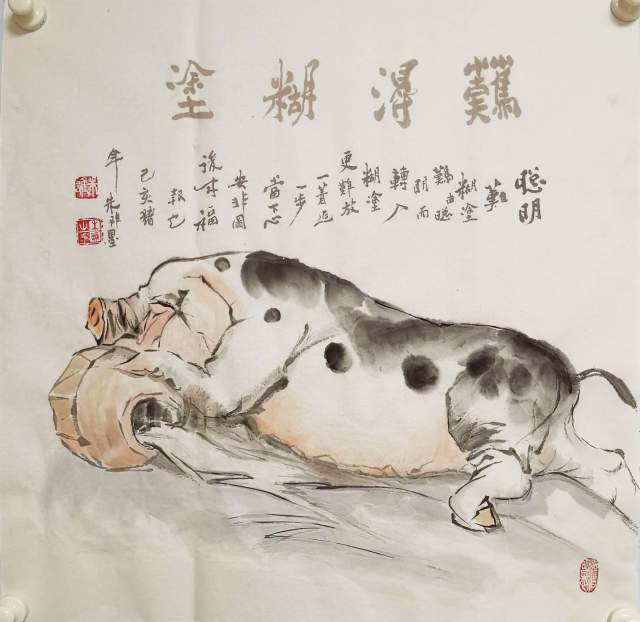 難得糊塗
聰明
難
糊塗
難由聰
明而
轉入
糊塗
更難放
一着退
一步
當下心
安非圖
後来福
報也
己亥豬
年